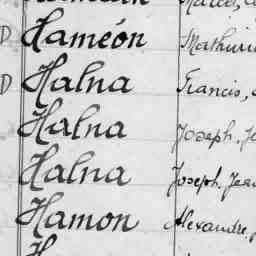 D Haméon Mathuri
D Halna Francis,
Halna Joseph. Je
Halna Joseph. Jea
Hamon Alexandre,